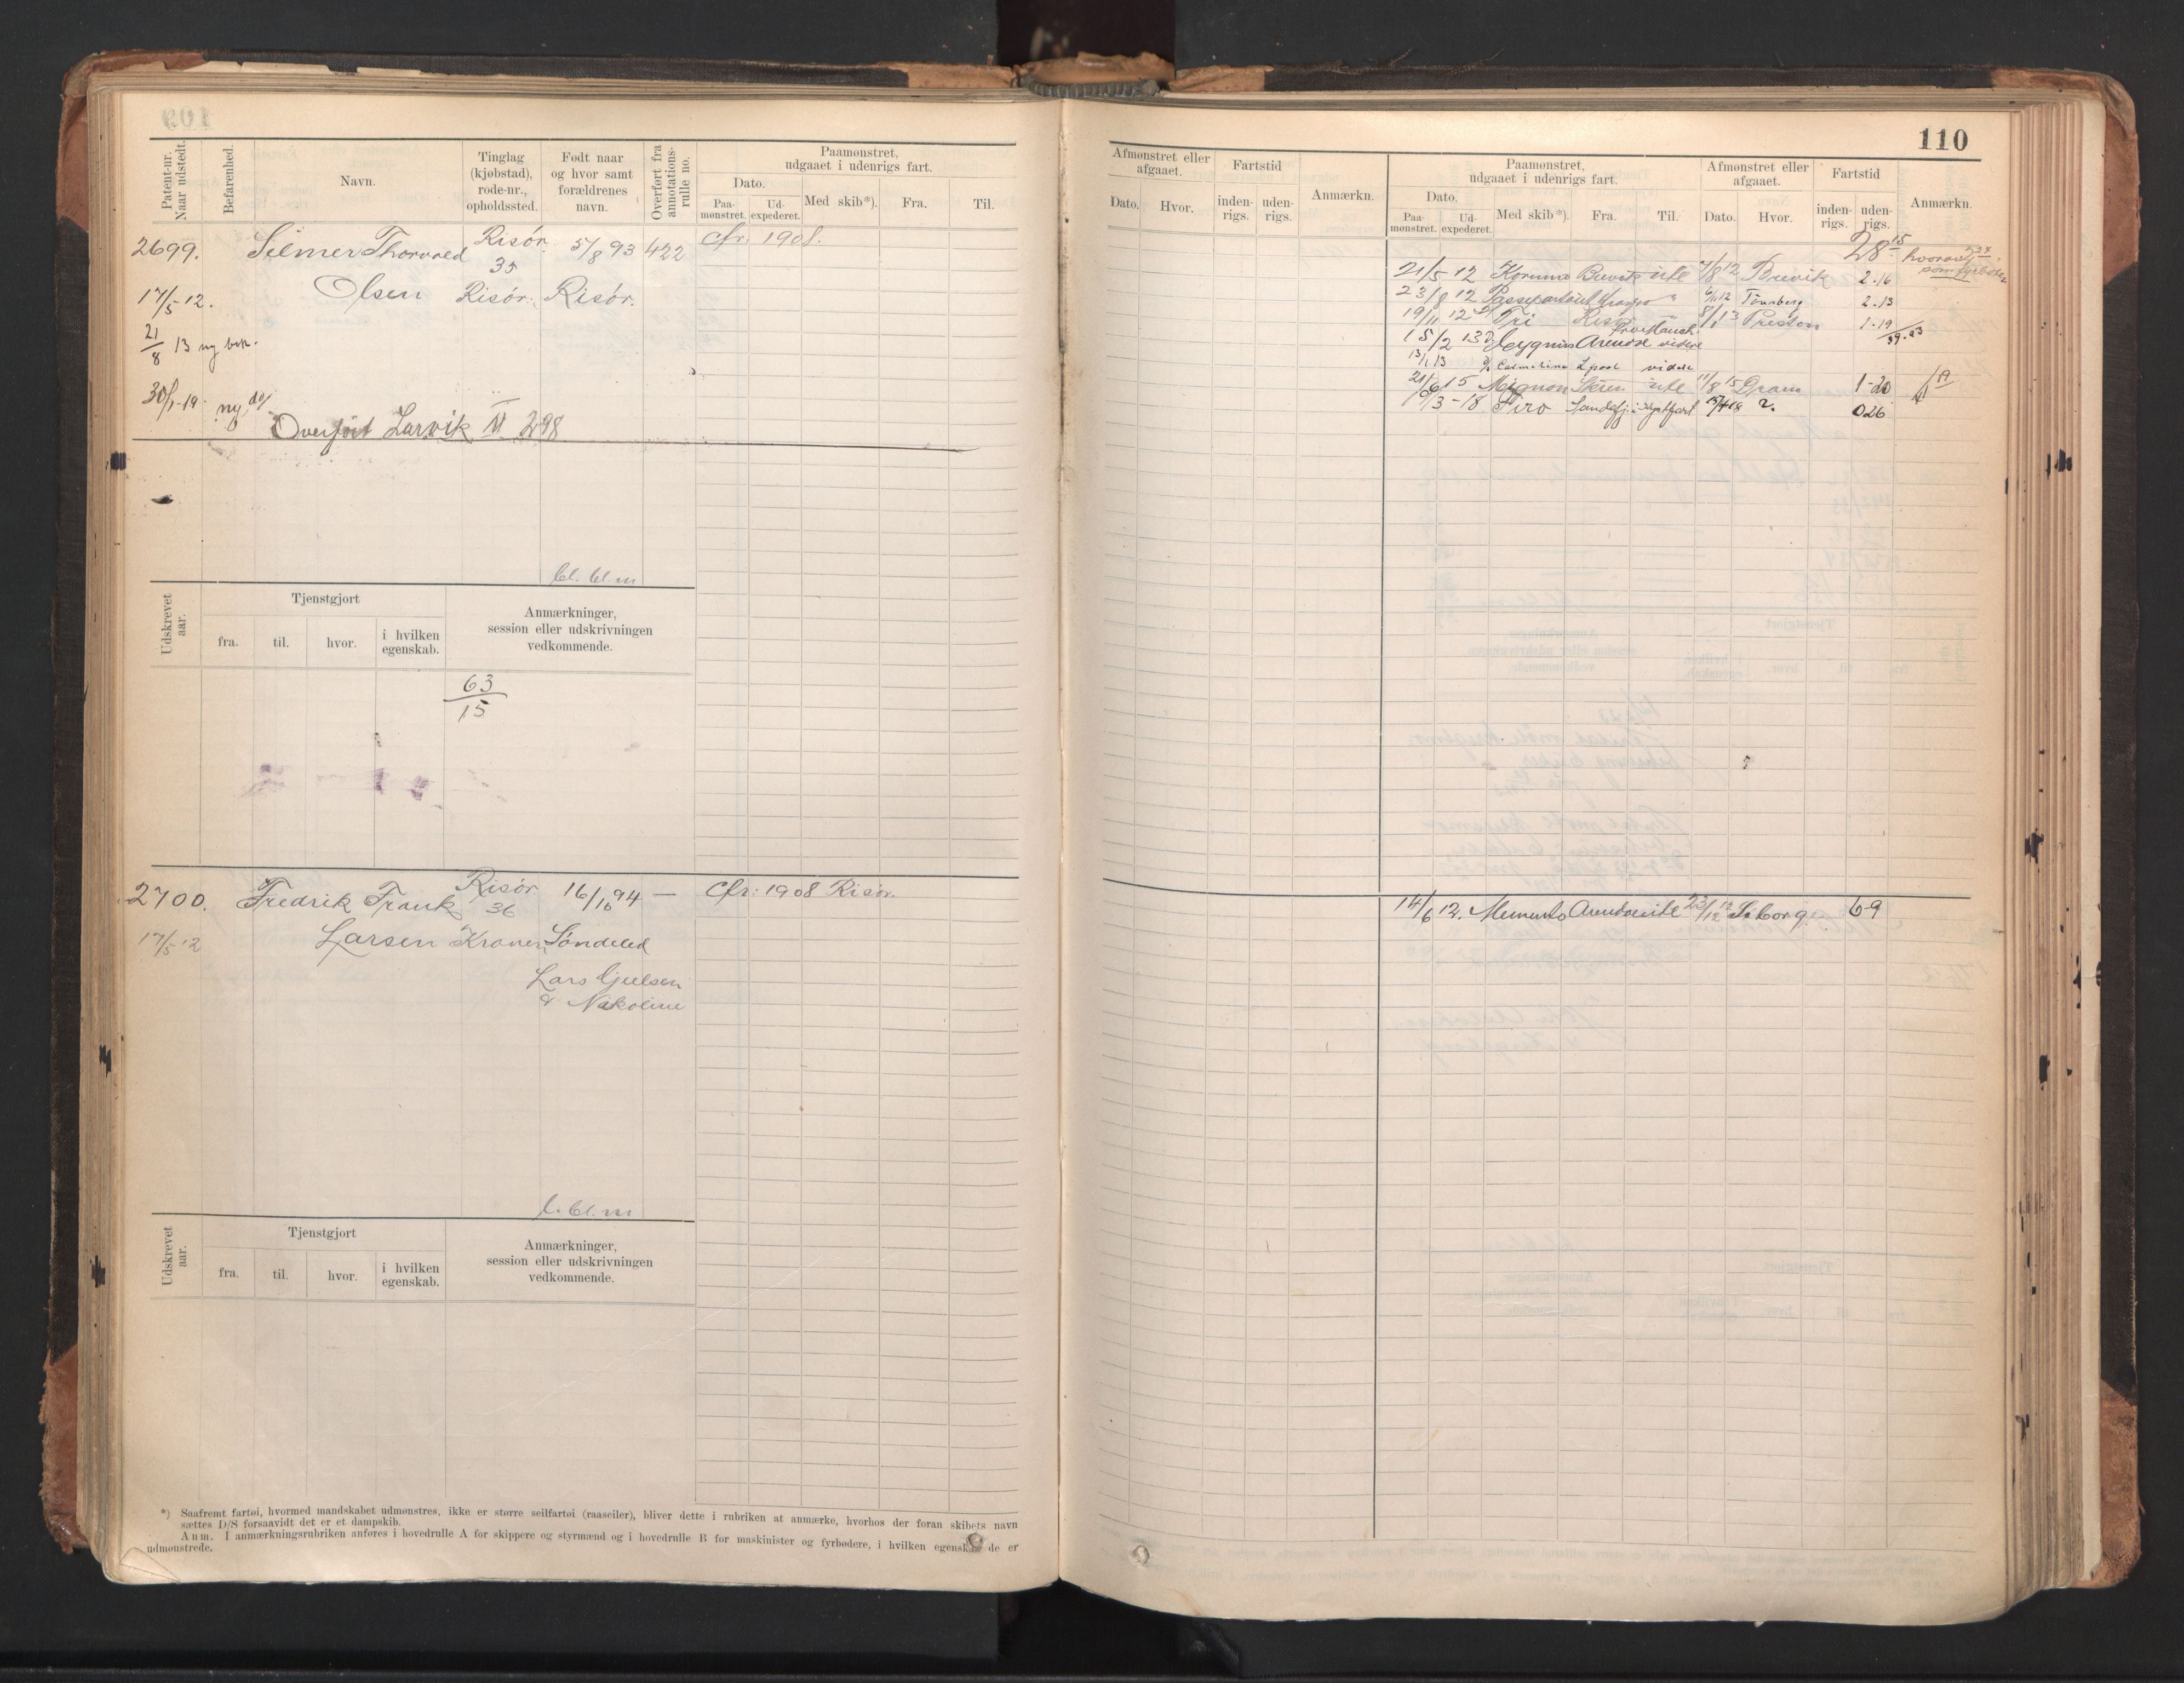 110
Patent-nr. Naar udstedt.
Befarenhed.
Navn.
Tinglag (kjøbstad), rode-nr., opholdssted.
Født naar og hvor samt forældrenes navn.
Overført fra annotations-rulle no.
Paamønstret, udgaaet i udenrigs fart.
Dato.
Paa-mønstret.
Ud-expederet.
Med skib*).
Fra.
Til.
2699. Selmer Thorvald Risør 5/8 93 422 Cfr: 1908.
35
17/5 12. Olsen Risør. Risør.
21/8 13 ny bok.
30/1-19. ny do/
Overført Larvik II 298
bl. bl. m
Udskrevet aar.
Tjenstgjort
fra.
til.
hvor.
i hvilken egenskab.
Anmærkninger, session eller udskrivningen vedkommende.
63
15
2700. Fredrik Frank Risør 16/10 94 — Cfr: 1908 Risør.
36
17/5 12 Larsen Kranen Søndeled
Lars Gjulsen
& Nakoline
b. bl. m
Udskrevet aar.
Tjenstgjort
fra.
til.
hvor.
i hvilken egenskab.
Anmærkninger, session eller udskrivningen vedkommende.
*) Saafremt fartøi, hvormed mandskabet udmønstres, ikke er større seilfartøi (raaseiler), bliver dette i rubriken at anmærke, hvorhos der foran skibets navn
sættes D/S forsaavidt det er et dampskib.
Anm. I anmærkningsrubriken anføres i hovedrulle A for skippere og styrmænd og i hovedrulle B for maskinister og fyrbødere, i hvilken egenskab de er
udmønstrede.
Afmønstret eller afgaaet.
Dato.
Hvor.
Fartstid
inden-rigs.
uden-rigs.
Anmærkn.
Paamønstret, udgaaet i udenrigs fart.
Dato.
Paa-mønstret.
Ud-expederet.
Med skib*).
Fra.
Til.
Afmønstret eller afgaaet.
Dato.
Hvor.
Fartstid
inden-rigs.
uden-rigs.
Anmærkn.
28 15 hvorav
som fyrbøter
21/5 12 Korona Brevik ute 7/8 12 Brevik 2.16
23/8 12 Passepartout Kragerø " 6/11 12 Tønsberg 2.13
19/11 12 Tri Risør " 8/1 13 Preston 1.19
15/2 13 Cygnus Arendal videre 39.23
13/1 13 Lpool videre
21/6 15 Mignon Skien ute 11/8 15 Dram 1-20
9/3-18 Firo Sandefj. i 17/4 18 ?. 026
14/6 12. Memento Arendal ute 23/12 12 Saborg. 6-9